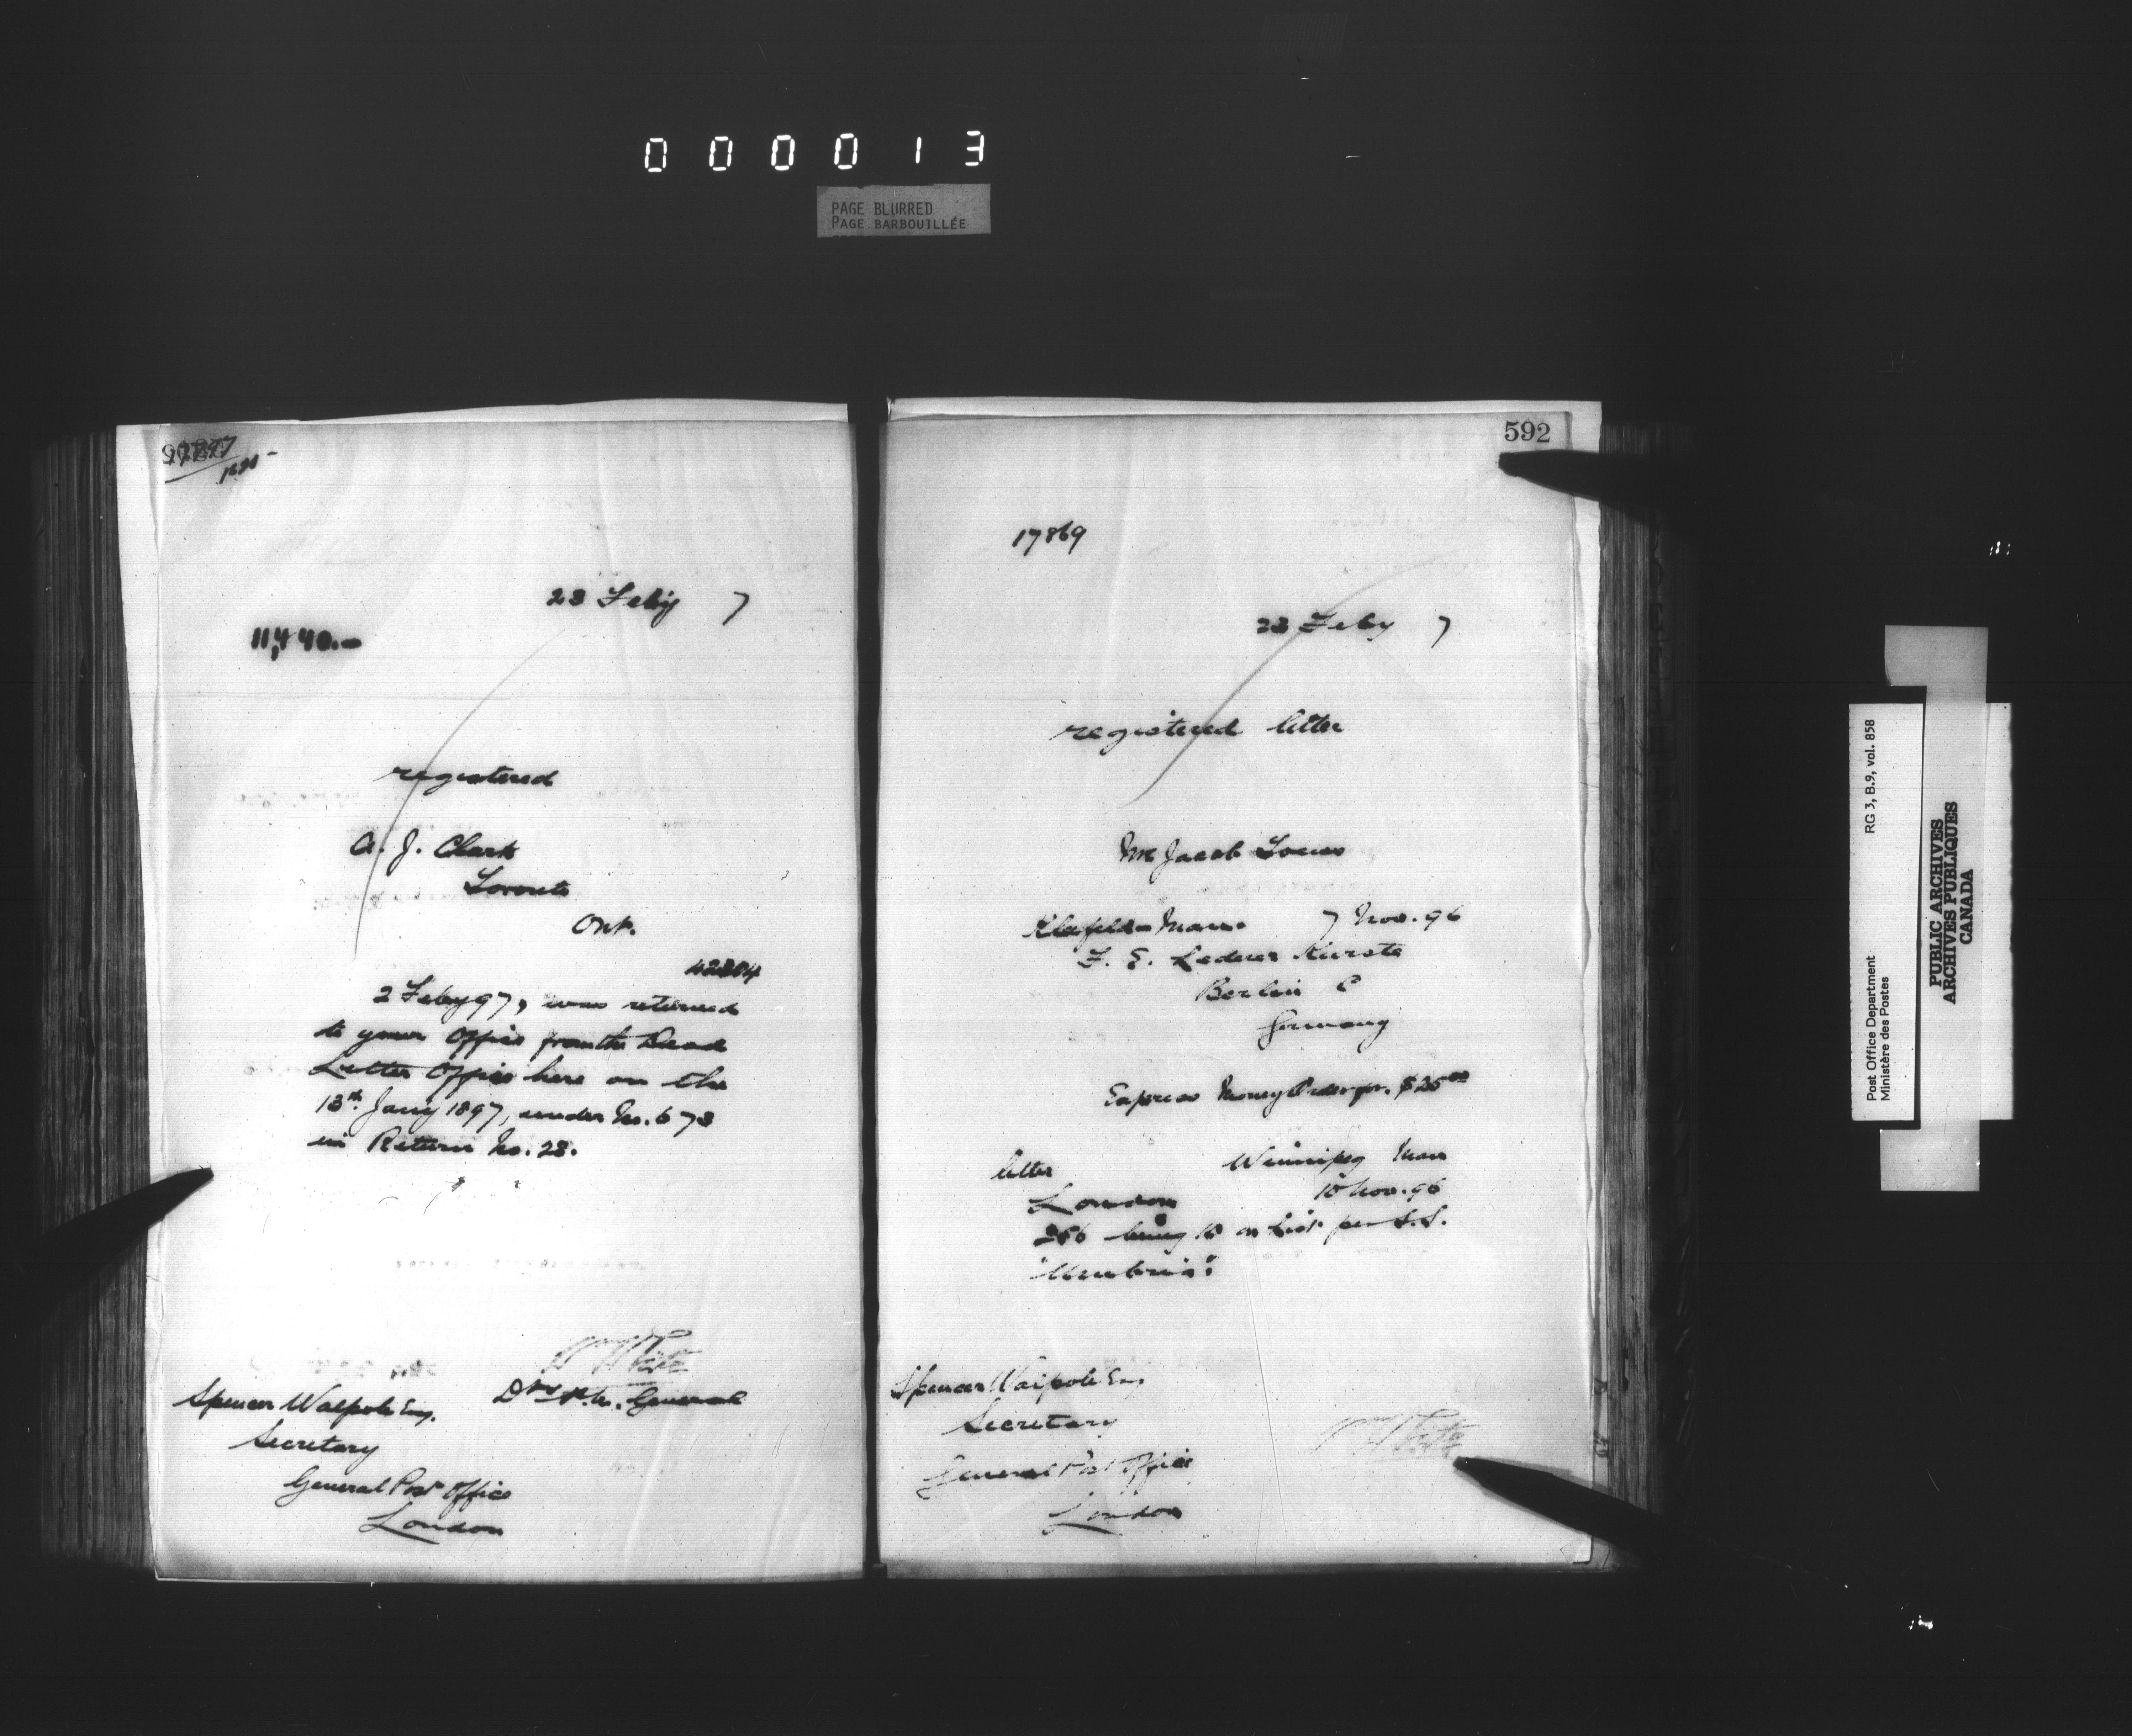 000013
PAGE BLURRED
PAGE BARBOUILLÉE
23 Feby 7
11,440.-
registered
A. J. Clark
Toronto
Ont.
2 Feby 97, was returned
to your Office from the Dead
Letter Office here on the
13th Jany 1897, under No. 673
in Return No. 23.
W White
Spencer Walpole Esq.
General
Secretary
General Post Office
London
592
17869
23 Feby 7
registered letter
Mr Jacob
7 Nov. 96
Berlin C
Germany
Express Money Order for $25 00
letter Winnipeg Man
London 10 Nov. 96
256 being 18 on List per S.S.
"Umbria".
Spencer Walpole Esq
Secretary
General Post Office
London
W White
Post Office Department
Ministère des Postes
RG 3, B.9, vol. 858
PUBLIC ARCHIVES
ARCHIVES PUBLIQUES
CANADA